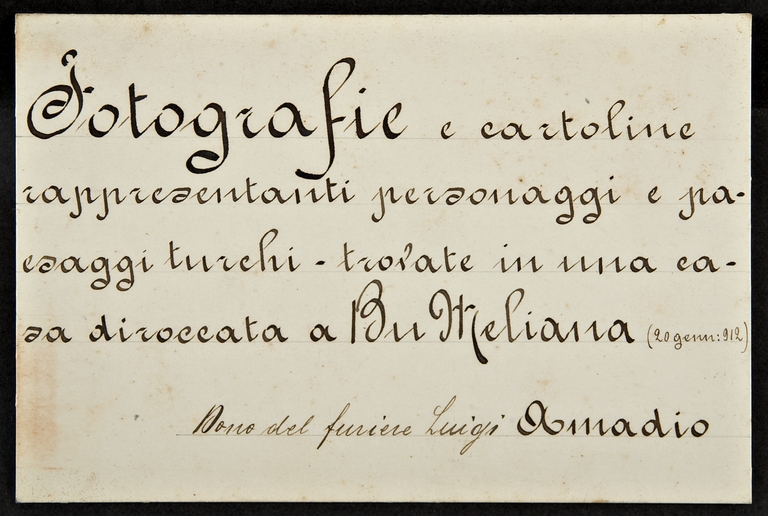 Fotografie e cartoline
rappresentanti personaggi e pa-
esaggi turchi - trovate in una ca-
sa diroccata a Bu Meliana (20 genn: 912)
Dono del furiere Luigi Amadio